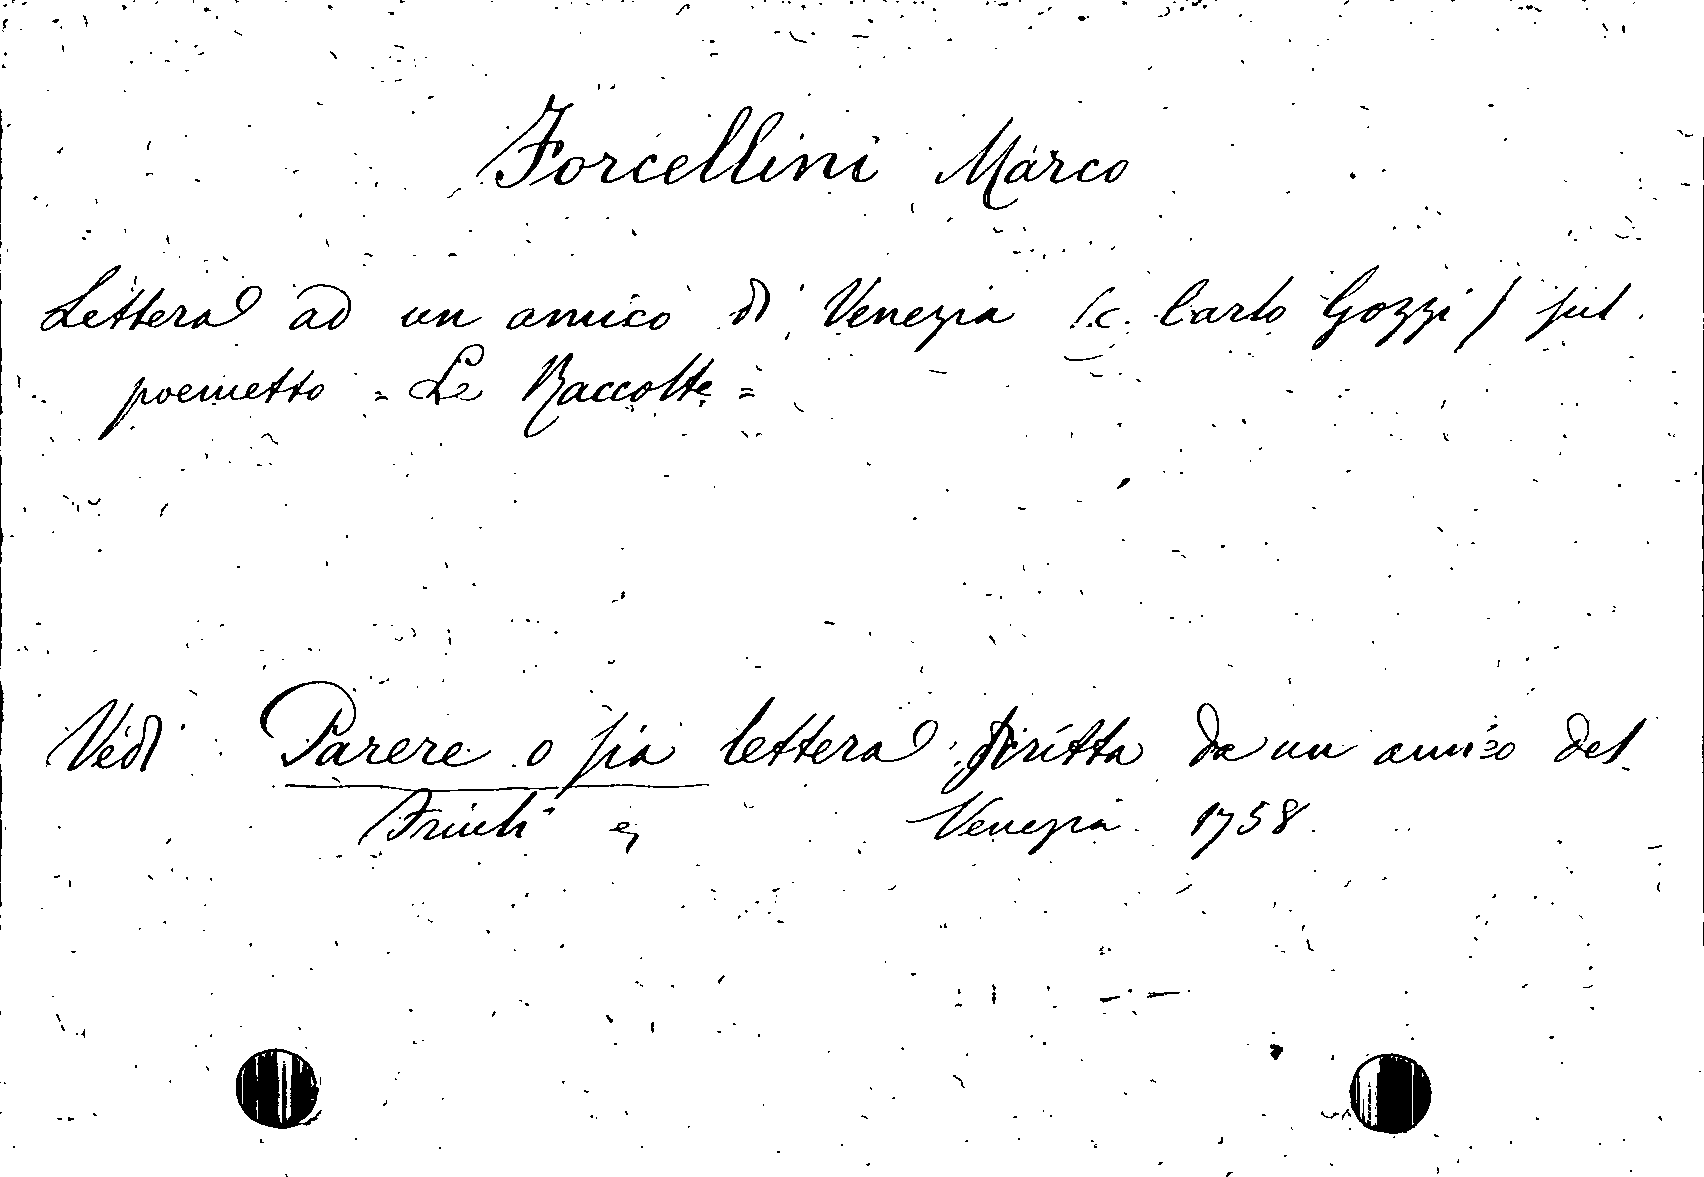 Forcellini Marco
Lettera ad un amico di Venezia (c. Carlo Gozzi) sul
poemetto = Le Raccolte =
Vedi Parere o sia lettera scritta da un amico del
Friuli Venezia 1758.